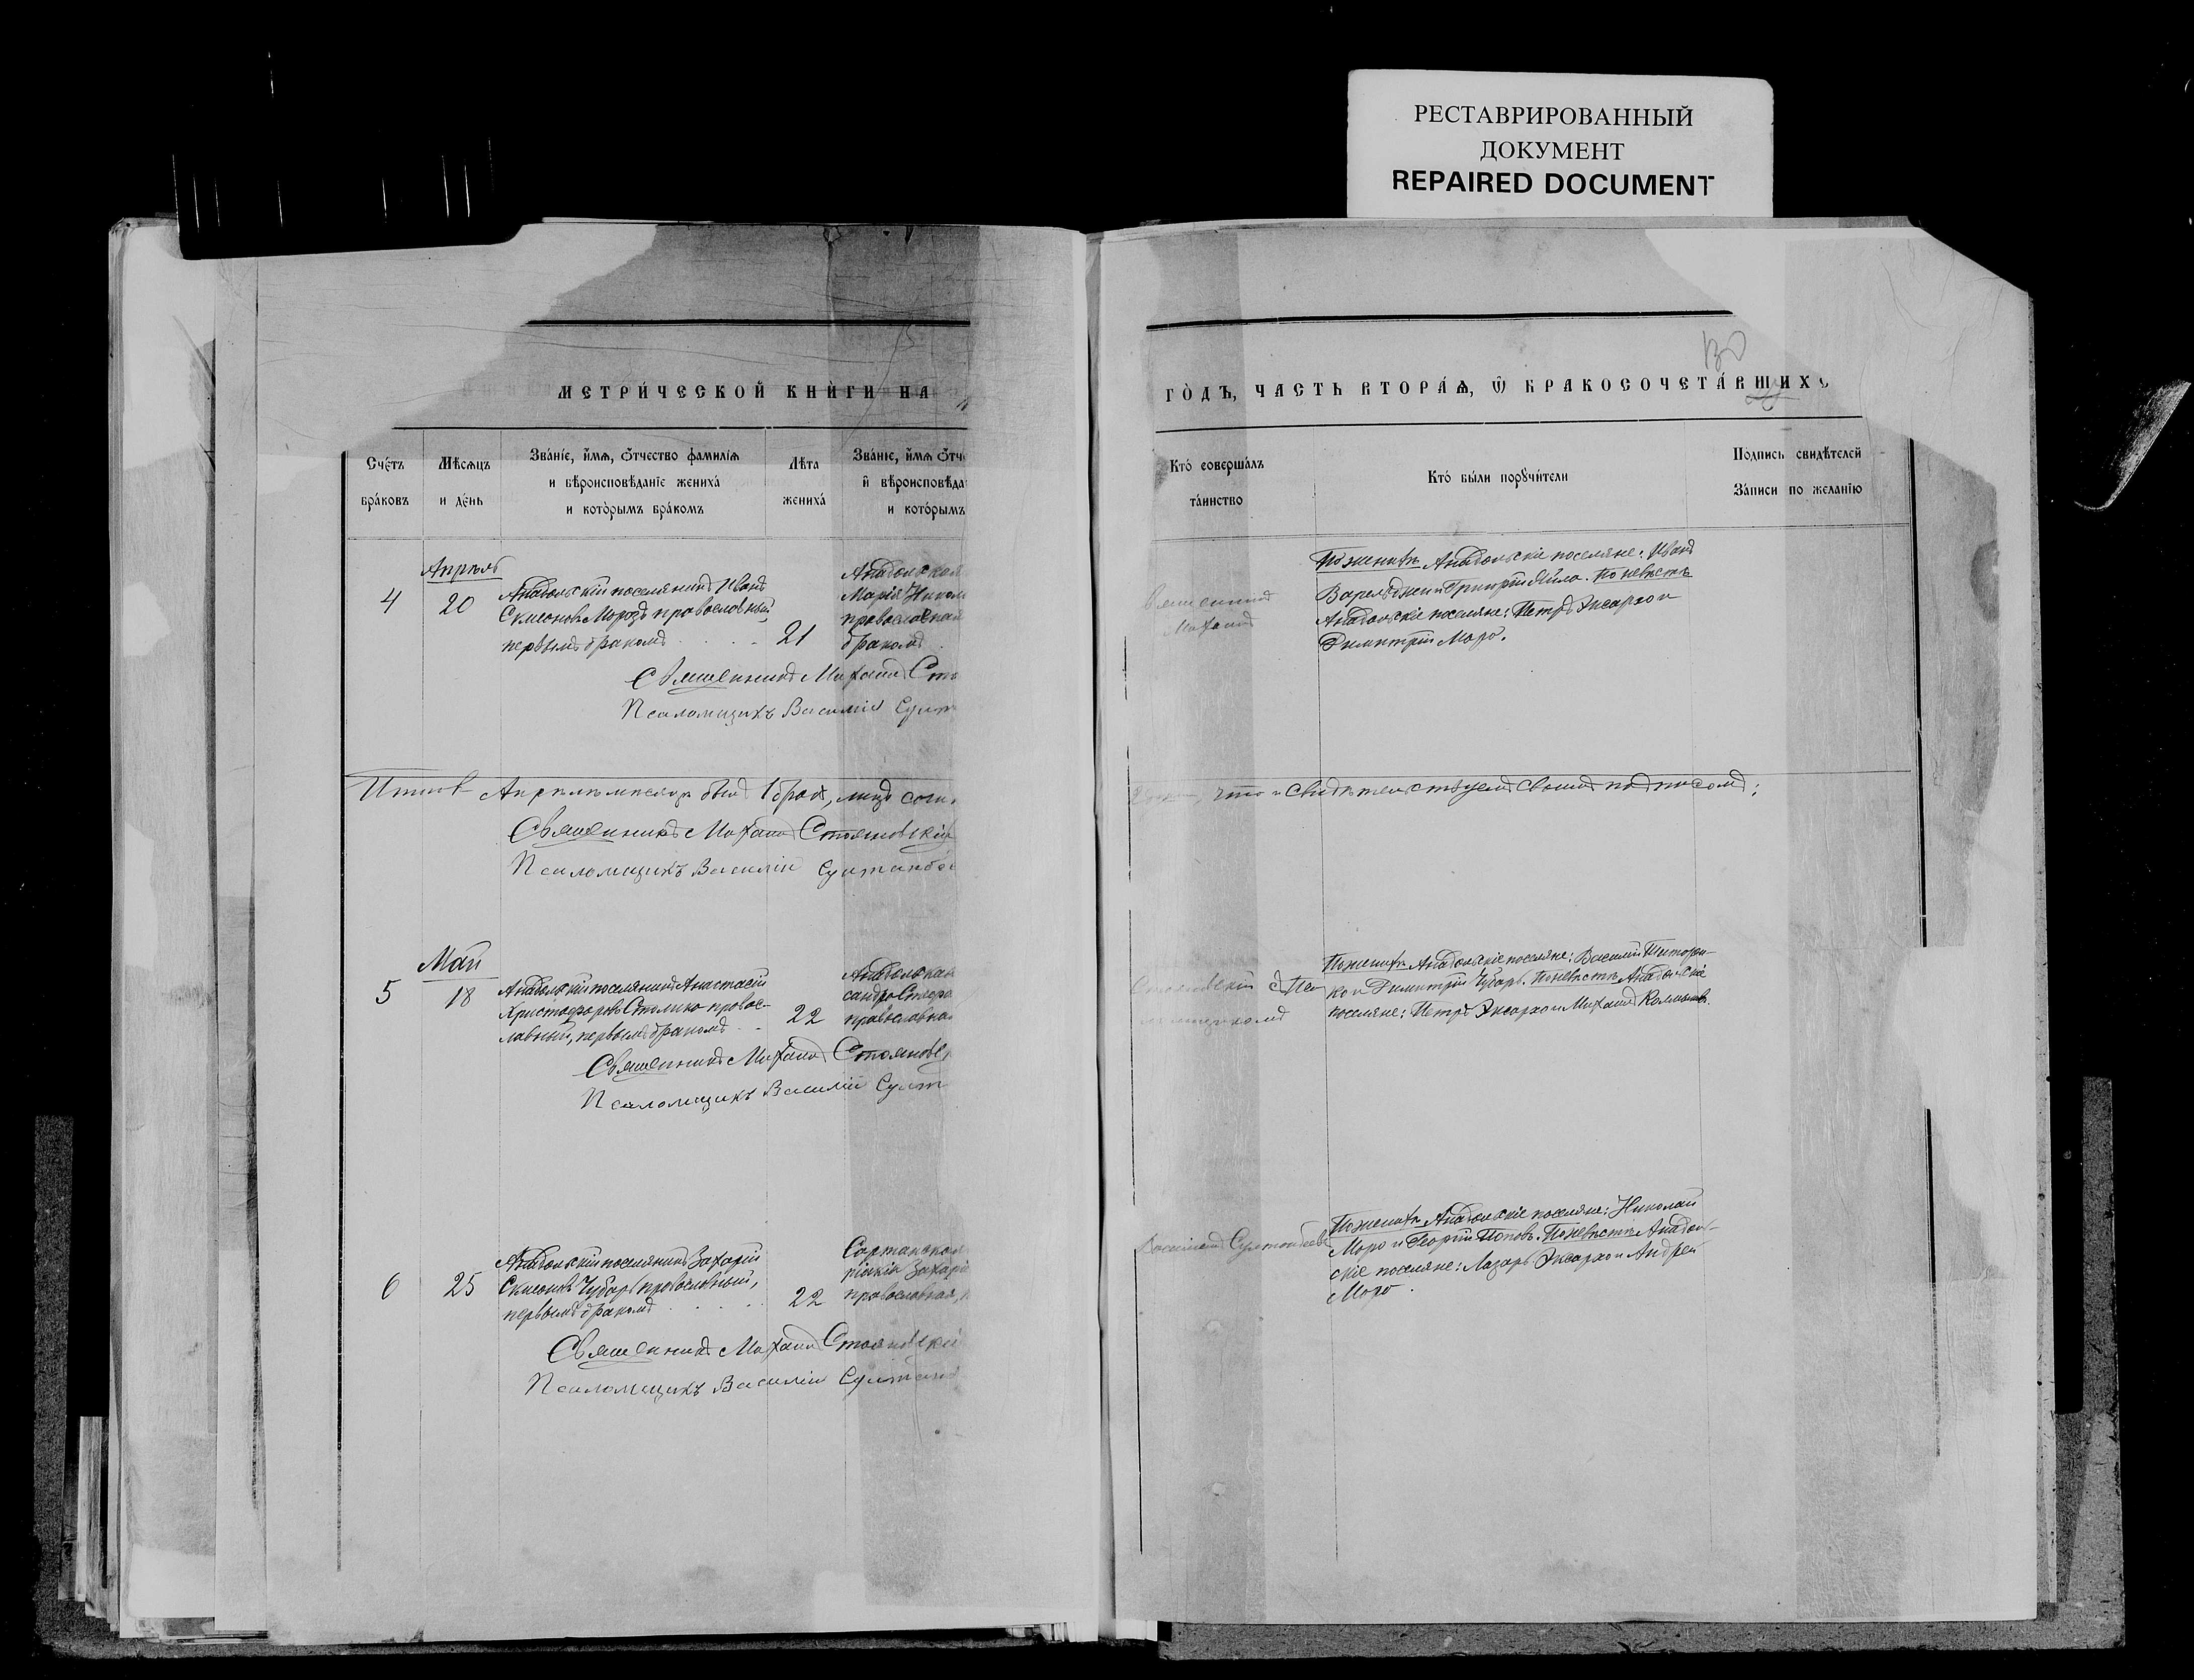 РЕСТАВРИРОВАННЫЙ
ДОКУМЕНТ
REPAIRED DOCUMENT
МЕТРИ́ЧЕСКОЙ КНЍГИ НА
Сче́тъ
бра́ковъ
Мѣ́сѧцъ
и де́нь
Зва́нїе, и҆́мѧ, ѻ҆́тчество фамилїѧ
и вѣроисповѣ́данїе жениха̀
и кото́рымъ бра́комъ
Лѣ́та
жениха̀
Зва́нїе, и҆́мѧ ѻ҆́тч
и҆ вѣроисповѣ́да
и кото́рымъ
4
Апрѣль
20
Анадольскій поселянинъ Иванъ
Симеоновъ Морозъ православный,
первымъ бракомъ
21
Анадольская
Марія Никол
православная
бракомъ
Священникъ Михаилъ Сто
Псаломщикъ Василій Султ
Итого въ Апрѣлѣ мѣсяцѣ былъ 1 бракъ, лицъ
Священникъ Михаилъ Стояновскій
Псаломщикъ Василій Султанбе
5
Май
18
Анадольскій поселянинъ Анастасій
Христофоровъ Столико правос-
лавный, первымъ бракомъ
22
Анадольская
православная
Священникъ Михаилъ Стоянов
Псаломщикъ Василій Султ
6
25
Анадольскій поселянинъ Захарій
Симеоновъ Чубарь православный,
первымъ бракомъ
22
Сартанская
Захарі
православная,
Священникъ Михаилъ Стояновскій
Псаломщикъ Василій Султан
130
ГО́ДЪ, ЧА́СТЬ ВТОРА́Ѧ, Ѽ БРАКОСОЧЕТА́ВШИХС
Кто̀ соверша́лъ
та́инство
Кто̀ бы́ли порꙋчи́тели
По́дпись свидѣ́телей
За́писи по желанїю
вященникъ
Михаилъ
По женихѣ Анадольскіе поселяне: Иванъ
и Григорій Яйло. По невѣстѣ
Анадольскіе поселяне: Петръ Эксархо и
Димитрій Моро.
что и свидѣтельствуемъ своимъ подписомъ:
Стояновскій с Пса
ломщикомъ
По женихѣ Анадольскіе поселяне: Василій
ко и Димитрій Чубарь. По невѣстѣ Анадольскіе
поселяне: Петръ Эксархо и Михаилъ
Василіемъ Султанбе
По женихѣ Анадольскіе поселяне: Николай
Моро и Георгій Поповъ. По невѣстѣ Анадоль-
скіе поселяне: Лазарь Эксархо и Андрей
Моро.